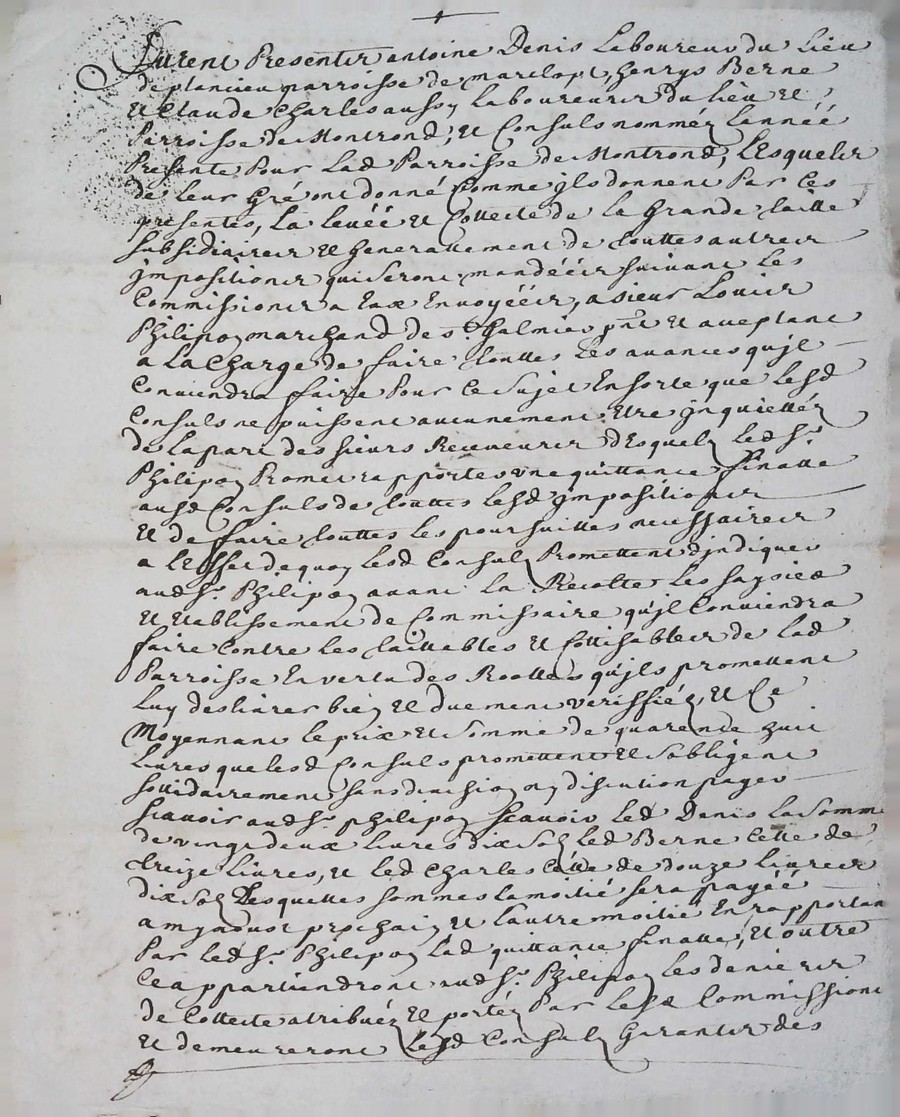 furent Presents antoine Denis Laboureur du Lieu
de plancieu parroisse de marclopt, henrys Berne
et Claude Charles aussy Laboureurs du Lieu et
Parroisse de Montrond, et Consuls nommez Lennéé
Presente Pour Lad Parroisse de Montrond, Lesquels
de Leur Gré ont donné Comme jls donnent Par Ces
presentes, La Levéé et Collecte de la Grande taille
subsidiaires et Generallement de touttes autres
jmpositions qui seront mandéés suivant les
Commissions a Eux Envoyéés, a sieur Louis
Philipon marchand de st. Galmier pnt et aceptant
a La Charge de faire touttes Les avances qujl
Conviendra faire Pour Ce sujet En sorte que lesd
Consuls ne puissent aucunement Etre jnquiettéz
de la part des sieurs Receveurs desquelz led sr.
Philipon Promet rapporter une quittance finalle
ausd Consuls de touttes lesd jmpositions
et de faire touttes les poursuittes necessaires
a l'Effet de quoy lesd Consulz Promettent djndiquer
aud sr. Philipon avant La Recolte les saysies
et Etablissement de Commissaire qujl Conviendra
faire Contre les taillables et Cottisables de Lad
Parroisse En vertu des Roolles qujls promettent
Luy deslivrer bien et duement veriffiéz, et Ce
Moyennant le prix et somme de quarente huit
Livres que lesd Consuls promettent et sobligent
sollidairement sans division ny discution payer
scavoir aud sr. philipon scavoir led Denis la somme
de vingt deux livres dix solz led Berne Celle de
treize Livres, et led Charles Celle de douze Livres
dix solz Lesquelles sommes la moitié sera payéé
a my novot prochain et l'autre moitié En rapportan
Par led sr. Philipon Lad quittance finalle, et outre
Ce appartiendront aud sr. Philipon les deniers
de Collecte atribuéz et portéz Par lesd Commissions
et demeureront Lesd Consulz Garants des